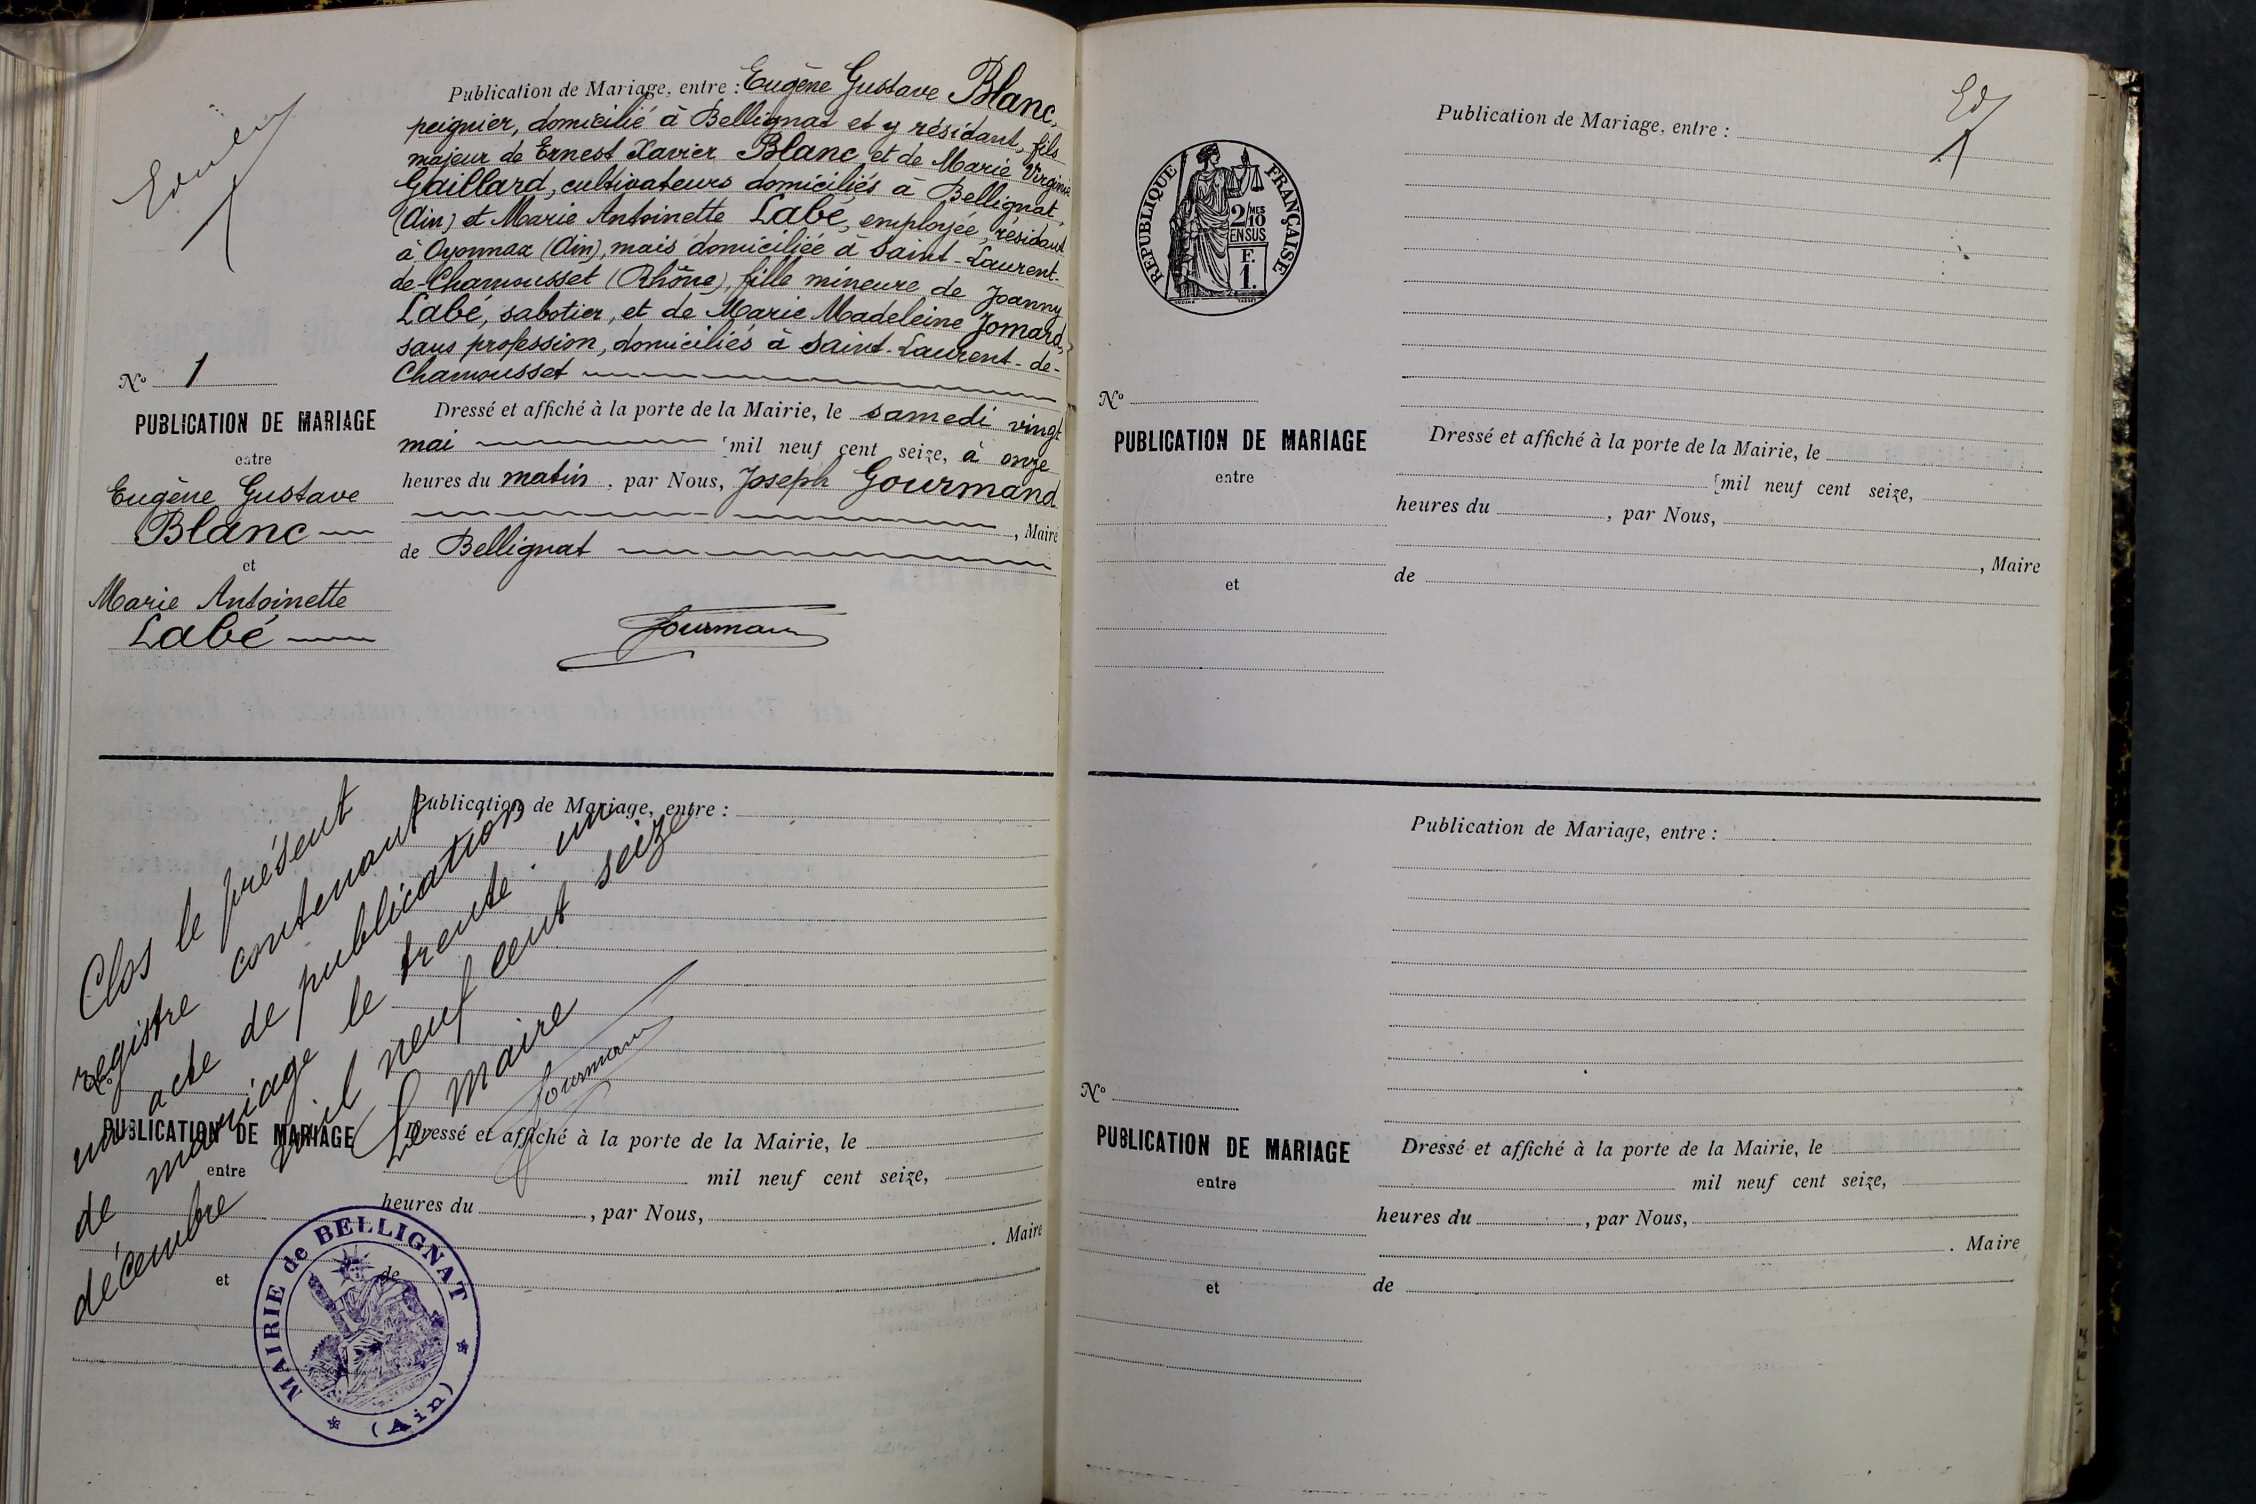 Publication de Mariage, entre : Eugène Gustave Blanc,
peignier, domicilié à Bellignat et y résidant, fils
majeur de Ernest Xavier Blanc et de Marie Virginie
Gaillard, cultivateurs domiciliés à Bellignat,
(Ain) et Marie Antoinette Labé, employée, résidant
à Oyonnax (Ain), mais domiciliée à Saint-Laurent-
de-Chamousset (Rhône), fille mineure de Joanny
Labé, sabotier, et de Marie Madeleine Jomard,
sans profession, domiciliés à Saint-Laurent-de-
Chamousset
Nº 1
PUBLICATION DE MARIAGE
entre
Eugène Gustave
Blanc
et
Marie Antoinette
Labé
Dressé et affiché à la porte de la Mairie, le samedi vingt
mai mil neuf cent seize, à onze
heures du matin, par Nous, Joseph Gourmand
, Maire
de Bellignat
Gourmand
Publication de Mariage, entre :
Clos le présent
registre contenant
un acte de publication
de mariage le trente-un
décembre mil neuf cent seize
Le maire
Gourmand
Nº
PUBLICATION DE MARIAGE
entre
et
Dressé et affiché à la porte de la Mairie, le
mil neuf cent seize,
heures du , par Nous,
. Maire
de
MAIRIE de BELLIGNAT
(Ain)
Publication de Mariage, entre :
RÉPUBLIQUE FRANÇAISE
2/MES
10
EN SUS
F.
1.
Nº
PUBLICATION DE MARIAGE
entre
et
Dressé et affiché à la porte de la Mairie, le
mil neuf cent seize,
heures du , par Nous,
, Maire
de
Publication de Mariage, entre :
Nº
PUBLICATION DE MARIAGE
entre
et
Dressé et affiché à la porte de la Mairie, le
mil neuf cent seize,
heures du , par Nous,
. Maire
de